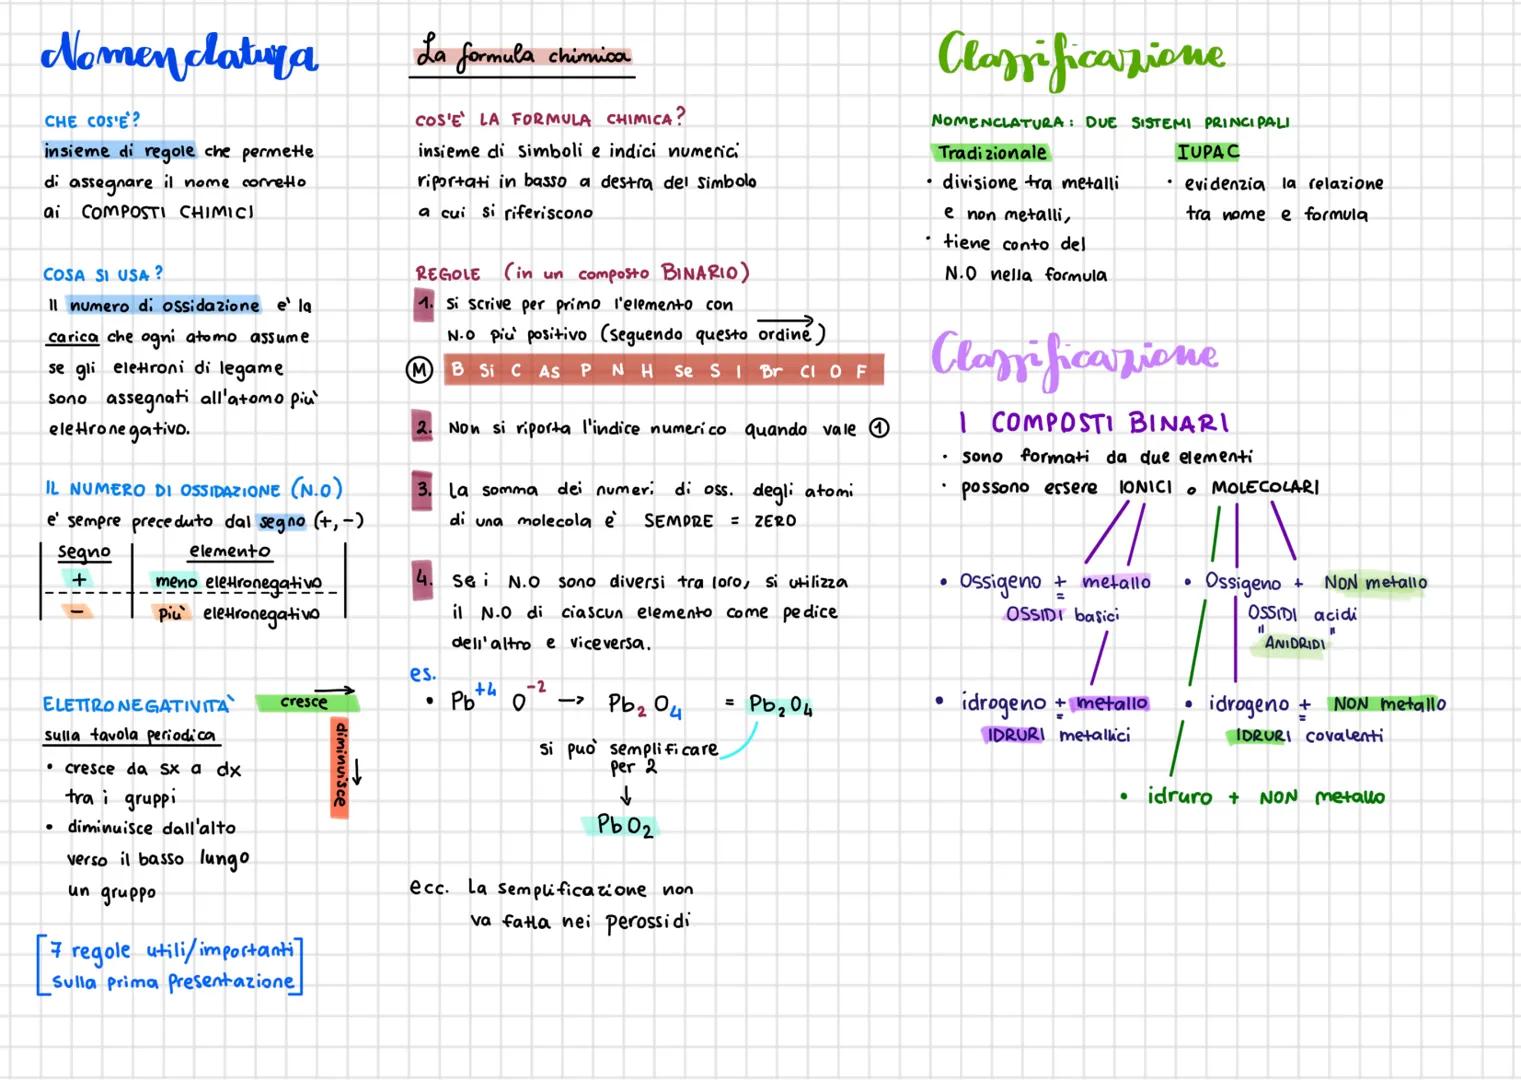 Nomenclatura
CHE COS'E'?
insieme di regole che permette
di assegnare il nome corretto
ai COMPOSTI CHIMICI
COSA SI USA?
Il numero di ossidazione e' la
carica che ogni atomo assume
se gli elettroni di legame
sono assegnati all'atomo più
elettronegativo.
IL NUMERO DI OSSIDAZIONE (N.O)
e' sempre preceduto dal segno (+,-)
segno elemento
+ meno elettronegativo
- più elettronegativo
ELETTRONEGATIVITA' cresce
sulla tavola periodica
diminuisce
• cresce da sx a dx
tra i gruppi
• diminuisce dall'alto
verso il basso lungo
un gruppo
[7 regole utili/importanti
sulla prima presentazione]
La formula chimica
COS'E' LA FORMULA CHIMICA?
insieme di simboli e indici numerici
riportati in basso a destra del simbolo
a cui si riferiscono
REGOLE (in un composto BINARIO)
1. Si scrive per primo l'elemento con
N.O più positivo (seguendo questo ordine)
M B Si C As P N H Se S I Br Cl O F
2. Non si riporta l'indice numerico quando vale 1
3. La somma dei numeri di oss. degli atomi
di una molecola è SEMPRE = ZERO
4. Se i N.O sono diversi tra loro, si utilizza
il N.O di ciascun elemento come pedice
dell'altro e viceversa.
es.
• Pb⁺⁴ O⁻² -> Pb₂ O₄ = Pb₂O₄
si può semplificare
per 2
↓
PbO₂
ecc. La semplificazione non
va fatta nei perossidi
Classificazione
NOMENCLATURA: DUE SISTEMI PRINCIPALI
Tradizionale IUPAC
• divisione tra metalli
e non metalli,
• tiene conto del
N.O nella formula
• evidenzia la relazione
tra nome e formula
Classificazione
I COMPOSTI BINARI
• sono formati da due elementi
• possono essere IONICI o MOLECOLARI
• Ossigeno + metallo
=
OSSIDI basici
• Ossigeno + NON metallo
OSSIDI acidi
" "
ANIDRIDI
• idrogeno + metallo
=
IDRURI metallici
• idrogeno + NON metallo
=
IDRURI covalenti
• idruro + NON metallo